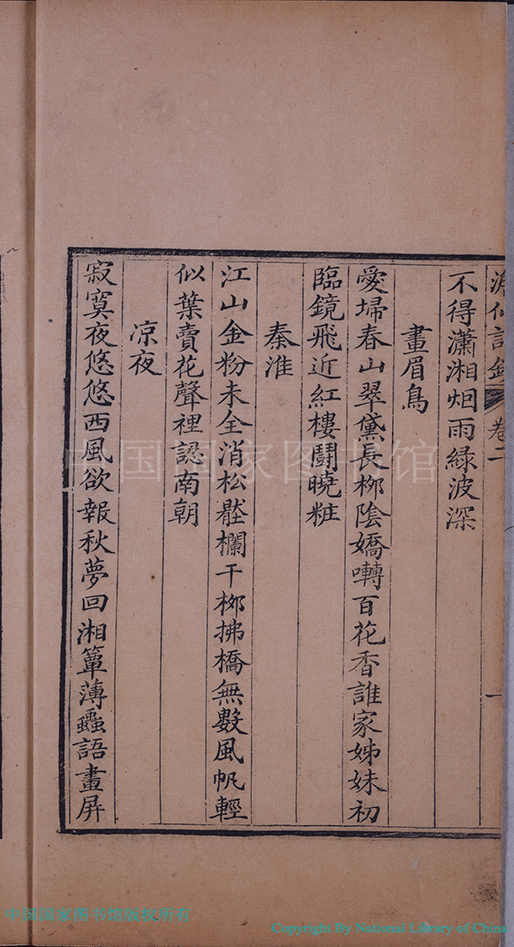 卷二
一
不得瀟湘烟雨綠波深
畫眉鳥
愛埽春山翠黛長栁陰嬌囀百花香誰家姊妹初
臨鏡飛近紅樓鬭曉粧
秦淮
江山金粉未全消松髹欄干栁拂橋無數風帆輕
似葉賣花聲裡認南朝
凉夜
寂寞夜悠悠西風欲報秋夢回湘簟薄蛩語畫屏
中国国家图书馆
中国国家图书馆版权所有
Copyright By National Library of China